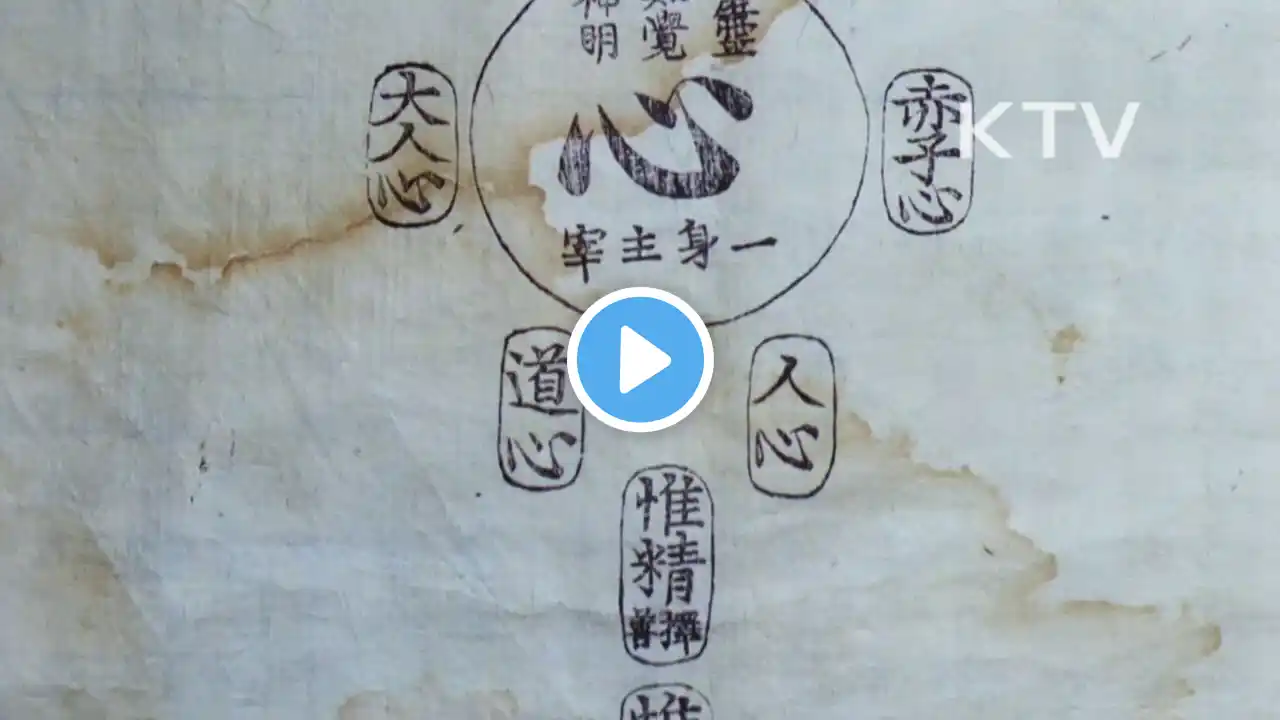 覺
明
心
一身主宰
大人心
赤子心
KTV
道心
人心
惟精
擇善
惟